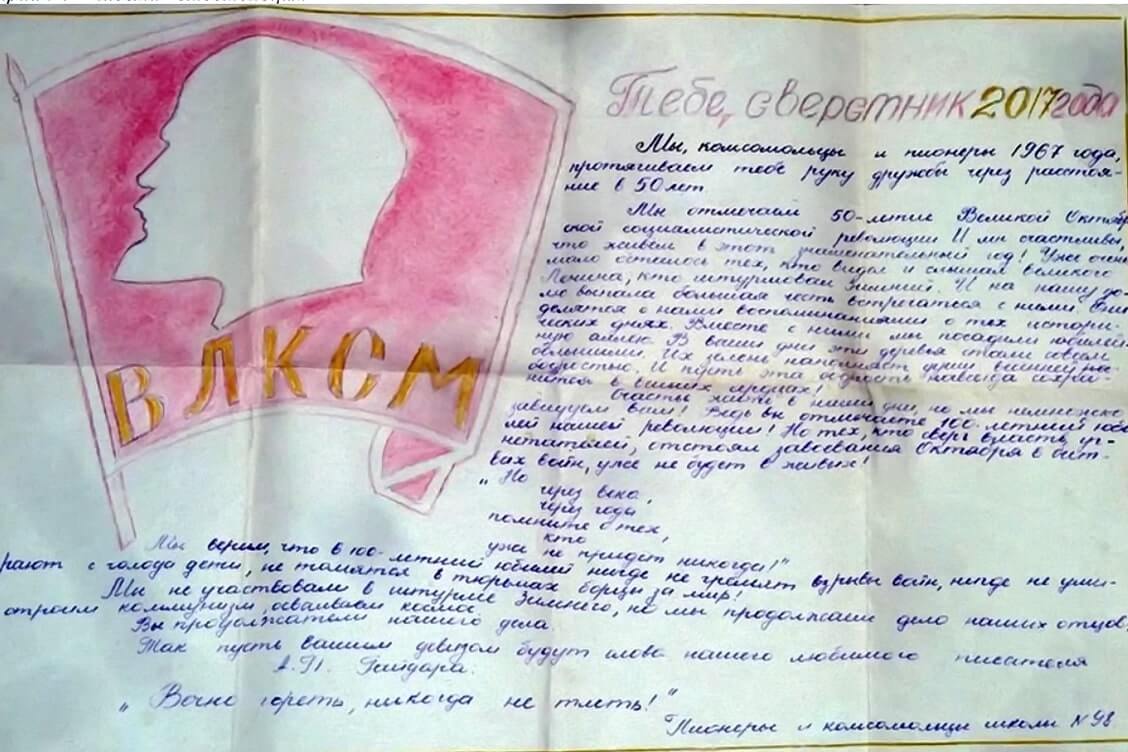 ВЛКСМ
Тебе, сверстник 2017 года
Мы, комсомольцы и пионеры 1967 года,
протягиваем тебе руку дружбы через расстоя-
ние в 50 лет
Мы отмечаем 50-летие Великой Октябрь
ской социалистической революции И мы счастливы,
что живем в этот знаменательный год! Уже очень
мало осталось тех, кто видел и слышал великого
Ленина, кто штурмовал Зимний. И на нашу до-
лю выпала большая честь встречаться с ними. Они
делятся с нами воспоминаниями о тех истори-
ческих днях. Вместе с ними мы посадили юбилей
ную аллею. В ваши дни эти деревья стали совсем
большими. Их зелень наполняет душу весенней
бодростью. И пусть эта бодрость навсегда сохра-
нится в ваших сердцах!
Счастье жить в наши дни, но мы немножко
завидуем вам! Ведь вы отмечаете 100-летний юби
лей нашей революции! Но тех, кто сверг власть уг-
нетателей, отстоял завоевания Октября в бит-
вах войн, уже не будет в живых!
„Но
через века,
через года
помните о тех,
кто
уже не придет никогда!"
Мы верим, что в 100-летний юбилей нигде не гремят взрывы войн, нигде не уми-
рают с голода дети, не томятся в тюрьмах борцы за мир!
Мы не участвовали в штурме Зимнего, но мы продолжаем дело наших отцов:
строим коммунизм, осваиваем космос.
Вы продолжатели нашего дела.
Так пусть вашим девизом будут слова нашего любимого писателя
А.П. Гайдара:
„Вечно гореть, никогда не тлеть!"
Пионеры и комсомольцы школы N 98